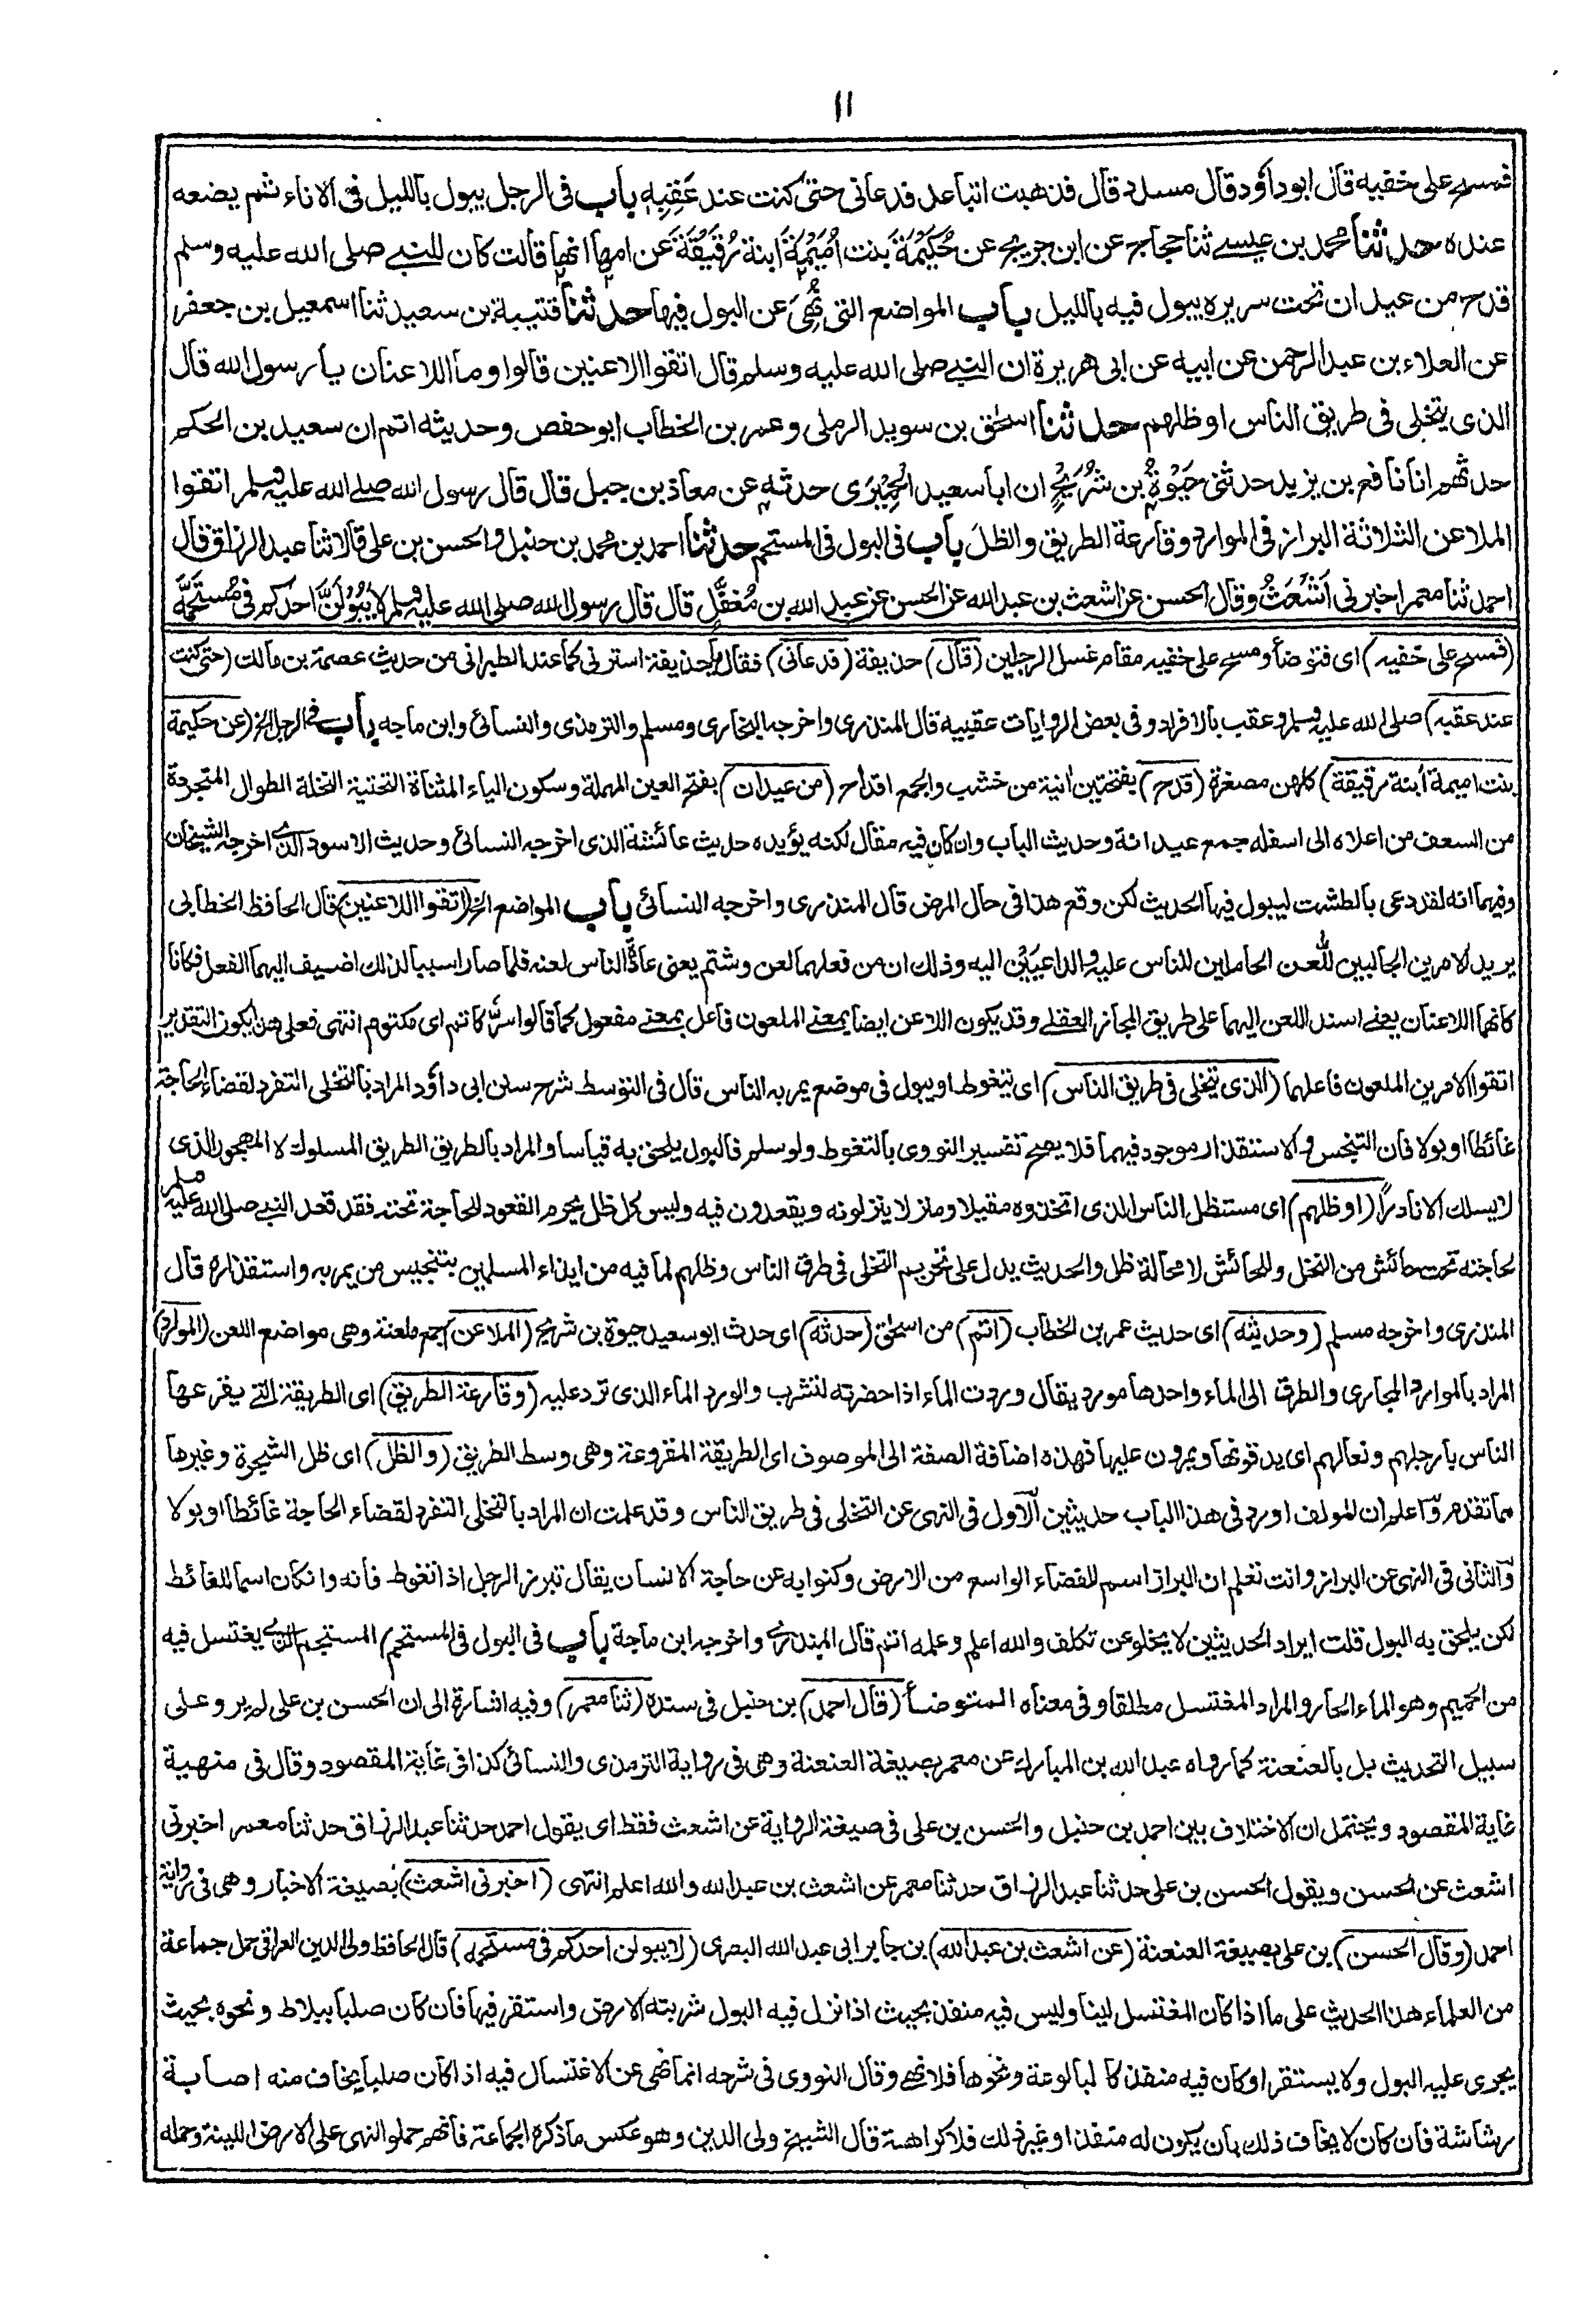 ۱۱
فمسح على خفيه قال ابوداؤد قال مسدد قال فذهبت اتباعد فدعانى حتى كنت عند عَقِبِهٖ باب فى الرجل يبول بالليل فى الاناء ثم يضعه
عنده حدثنا محمد بن عيسے ثنا حجاج عن ابن جريج عن حُكَيْمَةَ بنت اُمَيْمَةَ ابنة رُقَيْقَةَ عن امها انها قالت كان للنبے صلى الله عليه وسلم
قدح من عيدان تحت سريره يبول فيه بالليل باب المواضع التى نُهِىَ عن البول فيها حدثنا قتيبة بن سعيد ثنا اسمعيل بن جعفر
عن العلاء بن عبد الرحمن عن ابيه عن ابى هريرة ان النبے صلى الله عليه وسلم قال اتقوا الاعنين قالوا وما اللاعنان يا رسول الله قال
الذى يتخلى فى طريق الناس او ظلهم حدثنا اسحٰق بن سويد الرملى وعمر بن الخطاب ابو حفص وحديثه اتم ان سعيد بن الحكم
حدثهم انا نافع بن يزيد حدثنى حَيْوَةُ بن شُرَيْحٍ ان ابا سعيد الحِمْيَرى حدثه عن معاذ بن جبل قال قال رسول الله صلے الله عليه وسلم اتقوا
الملاعن الثلاثة البراز فى الموارد وقارعة الطريق والظل باب فى البول فى المستحم حدثنا احمد بن محمد بن حنبل والحسن بن على قالا ثنا عبد الرزاق قال
احمد ثنا معمر اخبرنى اَشْعَثُ وقال الحسن عن اشعث بن عبد الله عن الحسن عن عبد الله بن مُغَفَّل قال قال رسول الله صلى الله عليه وسلم لا يَبُوْلَنَّ احدكم فى مُسْتَحَمِّهٖ
(فمسح على خفيه) اى فتوضأ ومسح على خفيه مقام غسل الرجلين (قال) حذيفة (فدعانى) فقال يا حذيفة استرنى كما عند الطبرانى من حديث عصمة بن مالك (حتى كنت
عند عقبه) صلى الله عليه وسلم وعقب بالافراد وفى بعض الروايات عقبيه قال المنذرى واخرجه البخارى ومسلم والترمذى والنسائى وابن ماجه باب فى الرجل الخ (عن حكيمة
بنت اميمة ابنة رقيقة) كلهن مصغرة (قدح) بفتحتين آنية من خشب والجمع اقداح (من عيدان) بفتح العين المهملة وسكون الياء المثناة التحتية النخلة الطوال المتجردة
من السعف من اعلاه الى اسفله جمع عيدانة وحديث الباب وان كان فيه مقال لكنه يؤيده حديث عائشة الذى اخرجه النسائى وحديث الاسود الذى اخرجه الشيخان
وفيهما انه لقد دعى بالطشت ليبول فيها الحديث لكن وقع هذا فى حال المرض قال المنذرى واخرجه النسائى باب المواضع الخ (اتقوا اللاعنين) قال الحافظ الخطابى
يريد الامرين الجالبين للعن الحاملين للناس عليه والداعيين اليه وذلك ان من فعلهما لعن وشتم يعنى عادة الناس لعنه فلما صارا سببا لذلك اضيف اليهما الفعل فكانا
كانهما اللاعنان يعنے اسند اللعن اليهما على طريق المجاز العقلے وقد يكون اللاعن ايضا بمعنے الملعون فاعل بمعنے مفعول كما قالوا سر كاتم اى مكتوم انتهى فعلى هذا يكون التقدير
اتقوا الامرين الملعون فاعلهما (الذى يتخلى فى طريق الناس) اى يتغوط او يبول فى موضع يمر به الناس قال فى التوسط شرح سنن ابى داؤد المراد بالتخلى التفرد لقضاء الحاجة
غائطا او بولا فان التنجس والاستقذار موجود فيهما فلا يصح تفسير النووى بالتغوط ولو سلم فالبول يلحق به قياسا والمراد بالطريق الطريق المسلوك لا المهجور الذى
لا يسلك الا نادرًا (او ظلهم) اى مستظل الناس الذى اتخذوه مقيلا ومنزلا ينزلونه ويقعدون فيه وليس كل ظل يحرم القعود للحاجة تحته فقد قعد النبے صلى الله عليه وسلم
لحاجته تحت حائش من النخل وللحائش لا محالة ظل والحديث يدل على تحريم التخلى فى طرق الناس وظلهم لما فيه من ايذاء المسلمين بتنجيس من يمر به واستقذاره قال
المنذرى واخرجه مسلم (وحديثه) اى حديث عمر بن الخطاب (اتم) من اسحٰق (حدثه) اى حدث ابو سعيد حيوة بن شريح (الملاعن) جمع ملعنة وهى مواضع اللعن (الموارد)
المراد بالموارد المجارى والطرق الى الماء واحدها مورد يقال وردت الماء اذا حضرته لتشرب والورد الماء الذى ترد عليه (وقارعة الطريق) اى الطريقة التے يقرعها
الناس بارجلهم ونعالهم اى يدقونها ويمرون عليها فهذه اضافة الصفة الى الموصوف اى الطريقة المقروعة وهى وسط الطريق (والظل) اى ظل الشجرة وغيرها
مما تقدم وآعلم ان المولف اورد فى هذا الباب حديثين آلاول فى النهى عن التخلى فى طريق الناس وقد علمت ان المراد بالتخلى التفرد لقضاء الحاجة غائطا او بولا
وآلثانى فى النهى عن البراز وانت تعلم ان البراز اسم للفضاء الواسع من الارض وكنوا به عن حاجة الانسان يقال تبرز الرجل اذا تغوط فانه وان كان اسما للغائط
لكن يلحق به البول قلت ايراد الحديثين لا يخلو عن تكلف والله اعلم وعلمه اتم قال المنذرى واخرجه ابن ماجة باب فى البول فى المستحم) المستحم الذى يغتسل فيه
من الحميم وهو الماء الحار والمراد المغتسل مطلقا وفى معناه المتوضأ (قال احمد) بن حنبل فى سنده (ثنا معمر) وفيه اشارة الى ان الحسن بن على لم يرو على
سبيل التحديث بل بالعنعنة كما رواه عبد الله بن المبارك عن معمر بصيغة العنعنة وهى فى رواية الترمذى والنسائى كذا فى غاية المقصود وقال فى منهية
غاية المقصود ويحتمل ان الاختلاف بين احمد بن حنبل والحسن بن على فى صيغة الرواية عن اشعث فقط اى يقول احمد حدثنا عبد الرزاق حدثنا معمر اخبرنى
اشعث عن الحسن ويقول الحسن بن على حدثنا عبد الرزاق حدثنا معمر عن اشعث بن عبد الله والله اعلم انتهى (اخبرنى اشعث) بصيغة الاخبار وهى فى رواية
احمد (وقال الحسن) بن على بصيغة العنعنة (عن اشعث بن عبد الله) بن جابر ابى عبد الله البصرى (لا يبولن احدكم فى مستحمه) قال الحافظ ولى الدين العراقى حمل جماعة
من العلماء هذا الحديث على ما اذا كان المغتسل لينا وليس فيه منفذ بحيث اذا نزل فيه البول شربته الارض واستقر فيها فان كان صلبا ببلاط ونحوه بحيث
يجرى عليه البول ولا يستقر او كان فيه منفذ كالبالوعة ونحوها فلا نهے وقال النووى فى شرحه انما نهى عن الاغتسال فيه اذا كان صلبا يخاف منه اصابة
رشاشة فان كان لا يخاف ذلك بان يكون له منفذ او غير ذلك فلا كراهة قال الشيخ ولى الدين وهو عكس ما ذكره الجماعة فانهم حملوا النهى على الارض اللينة وحمله